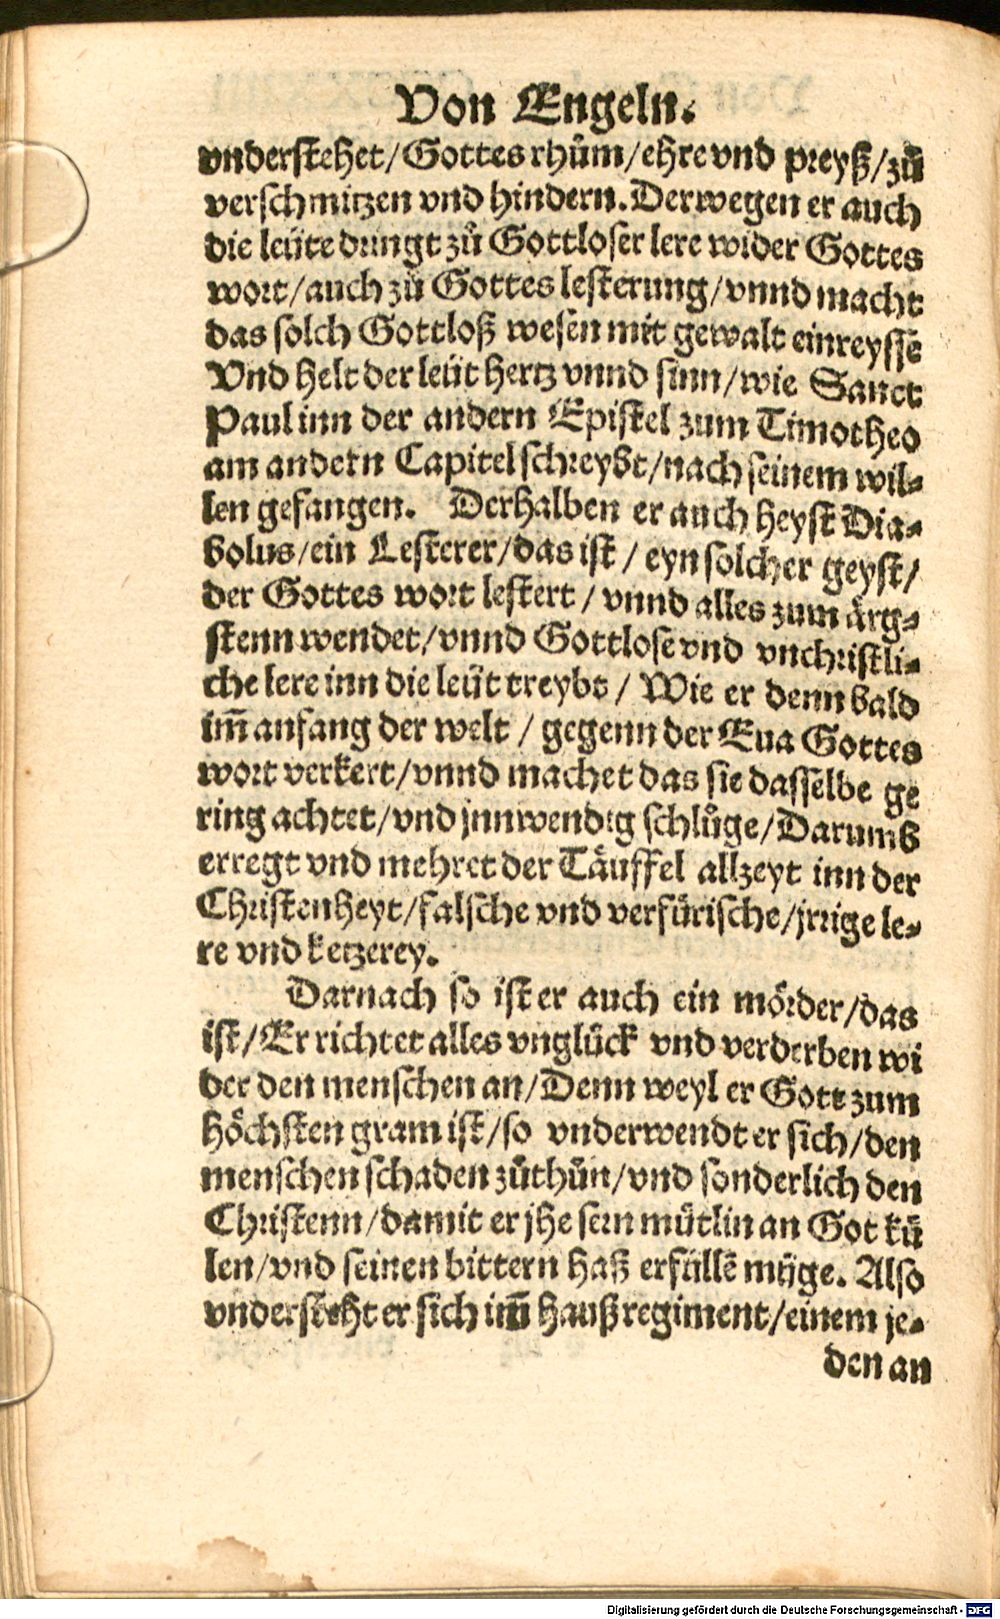 Von Engeln.
vnderstehet/Gottes rhům/ehre vnd preyß/zů
verschmitzen vnd hindern. Derwegen er auch
die leüte dringt zů Gottloser lere wider Gottes
wort/auch zů Gottes lesterung/vnnd macht
das solch Gottloß wesen mit gewalt einreyssē
Vnd helt der leüt hertz vnnd sinn/wie Sanct
Paul inn der andern Epistel zum Timotheo
am andern Capitel schreybt/nach seinem wil-
len gefangen. Derhalben er auch heyst Dia-
bolus/ein Lesterer/das ist / eyn solcher geyst/
der Gottes wort lestert / vnnd alles zum ärg-
stenn wendet/vnnd Gottlose vnd vnchristli-
che lere inn die leüt treybt / Wie er denn bald
im̄ anfang der welt / gegenn der Eua Gottes
wort verkert/vnnd machet das sie dasselbe ge
ring achtet/vnd jnnwendig schlůge/Darumb
erregt vnd mehret der Täuffel allzeyt inn der
Christenheyt/falsche vnd verfürische/jrrige le-
re vnd ketzerey.
Darnach so ist er auch ein mörder/das
ist/Er richtet alles vnglück vnd verderben wi
der den menschen an/Denn weyl er Gott zum
höchsten gram ist/so vnderwendt er sich/den
menschen schaden zůthůn/vnd sonderlich den
Christenn/damit er jhe sein mütlin an Got kü
len/vnd seinen bittern haß erfüllē müge. Also
vndersteht er sich im̄ haußregiment/einem je-
den an
Digitalisierung gefördert durch die Deutsche Forschungsgemeinschaft - DFG